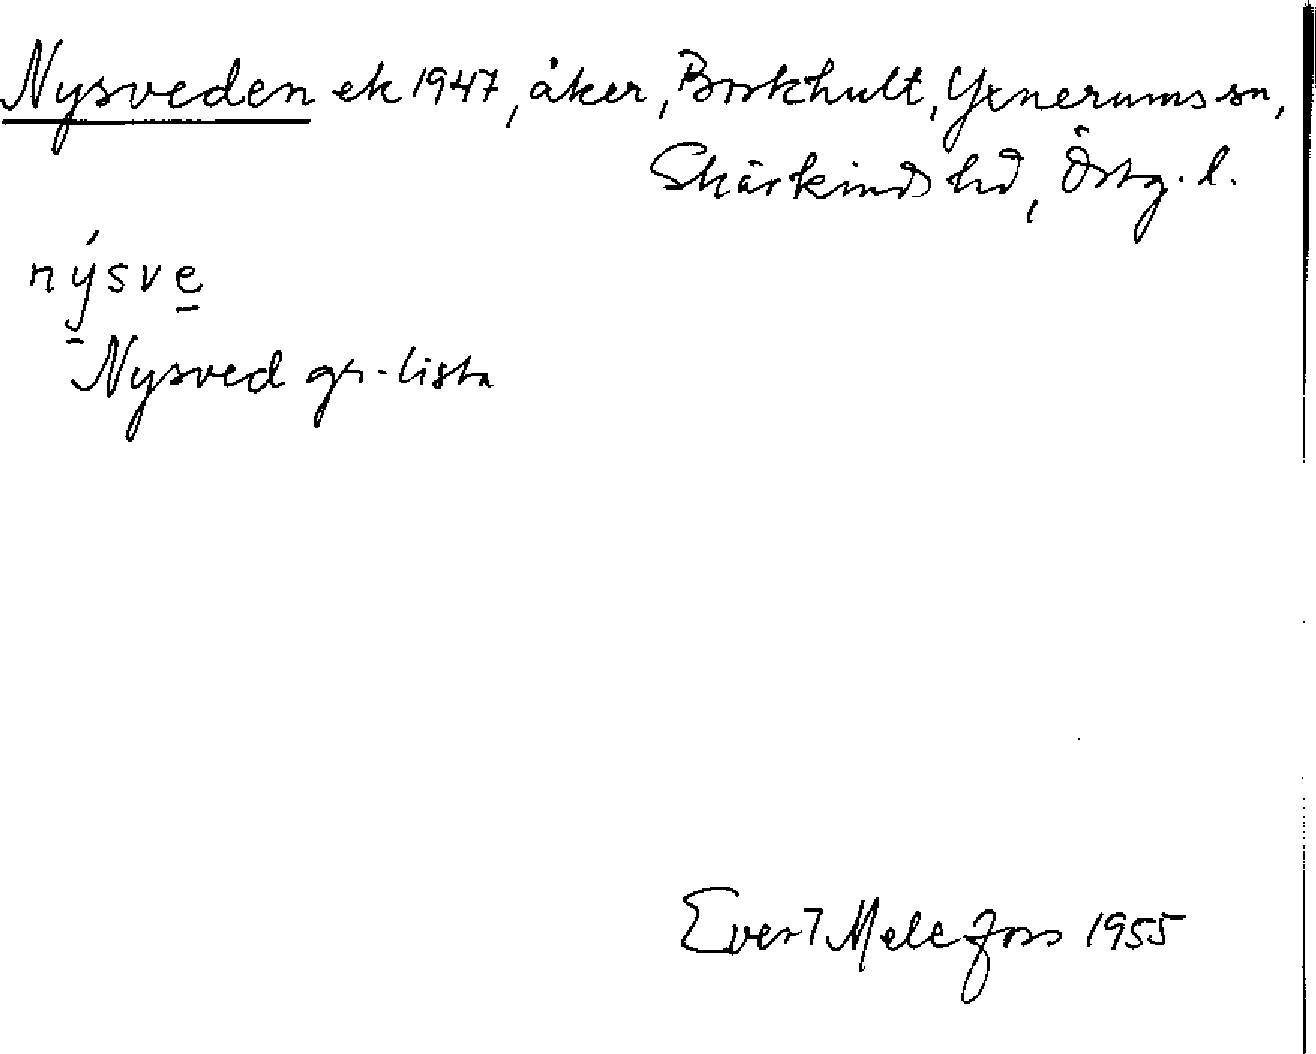 Nysveden ek 1947, åker, Borkhult, Yxnerums sn,
Skärkinds hd, Östg. l.
nýsve
Nysved gr.-lista
Evert Melefors 1955